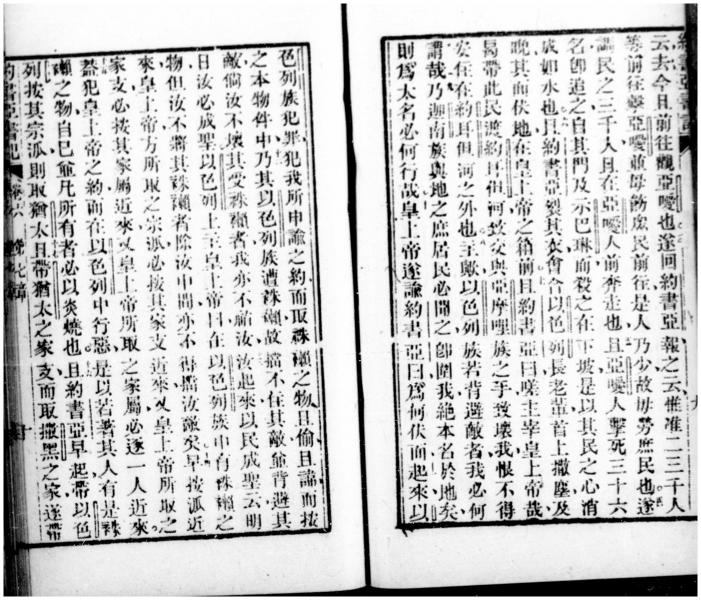 云去今且前往觀亞噯也遂回約書亞報之云惟准二三千人
等前往擊亞噯並毋飭庶民前往是人乃少故毋勞庶民也遂
民之三千人且在亞噯人前奔走也且亞噯人擊死三十六
名卽追之自其門及示巴琳而殺之在下坡是以其民之心消
成如水也且約書亞裂其衣會合以色列長老輩首上撒塵及
晚其而伏地在皇上帝之箱前且約書亞曰嗟主宰皇上帝哉
曷帶此民渡約耳但河致交與亞摩哩族之手致壞我恨不得
安住在約耳但河之外也主歟以色列族若背避敵者我必何
謂哉乃迦南族與地之庶居民必聞之卽圍我絕本名於地矣
則爲太名必何行哉皇上帝遂諭約書亞曰爲何伏而起來以
色列族犯罪犯我所申諭之約而取誅之物且偷且謊而按
之本物件中乃其以色列族遭誅故擋不在其敵並背避其
敵倘今汝不壞其受誅者我亦不祐汝汝起來以民成聖云明
日汝必成聖以色列上主皇上帝曰在以色列族中有誅之
物但汝不將其誅者除汝中間亦不得擋汝敵矣早按派近
來皇上帝方所取之宗派必按其家支近來又皇上帝所取之
家支必按其家屬近來又皇上帝所取之家屬必逐一人近來
蓋犯皇上帝之約而在以色列中行惡是以若著其人有是誅
之物自己並凡所有者必以炎燒也且約書亞早起帶以色
列按其宗派則取猶太且帶猶太之家支而取撒黑之家遂帶
約書亞書記 卷六 第七章